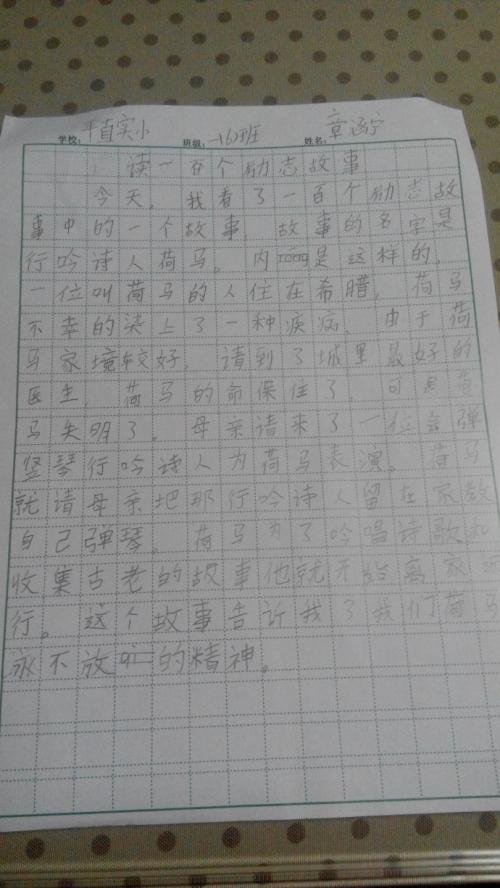 学校：平直实小 班级：一(6)班 姓名：章涵宁
读一百个励志故事
今天，我看了一百个励志故
事中的一个故事，故事的名字是
行吟诗人荷马。内róng是这样的，
一位叫荷马的人住在希腊，荷马
不幸的染上了一种疾病，由于荷
马家境较好，请到了城里最好的
医生，荷马的命保住了，可是荷
马失明了。母亲请来了一位会弹
竖琴行吟诗人为荷马表演。荷马
就请母亲把那行吟诗人留在家教
自己弹琴。荷马为了吟唱诗歌和
收集古老的故事他就开始离家
行。这个故事告许我了我们荷马
永不放qì的精神。